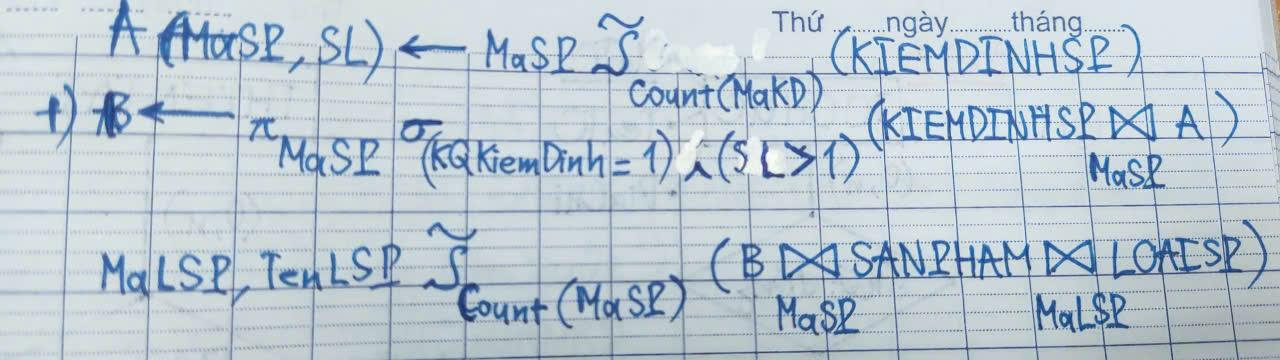 Thứ ........ngày........tháng........
A (MaSP, SL) ← MaSP ℑ Count(MaKD) (KIEMDINHSP)
+) B ← π MaSP σ (KQKiemDinh = 1) ∧ (SL > 1) (KIEMDINHSP ⋈ A)
MaSP
MaLSP, TenLSP ℑ Count (MaSP) (B ⋈ SANPHAM ⋈ LOAISP)
MaSP MaLSP